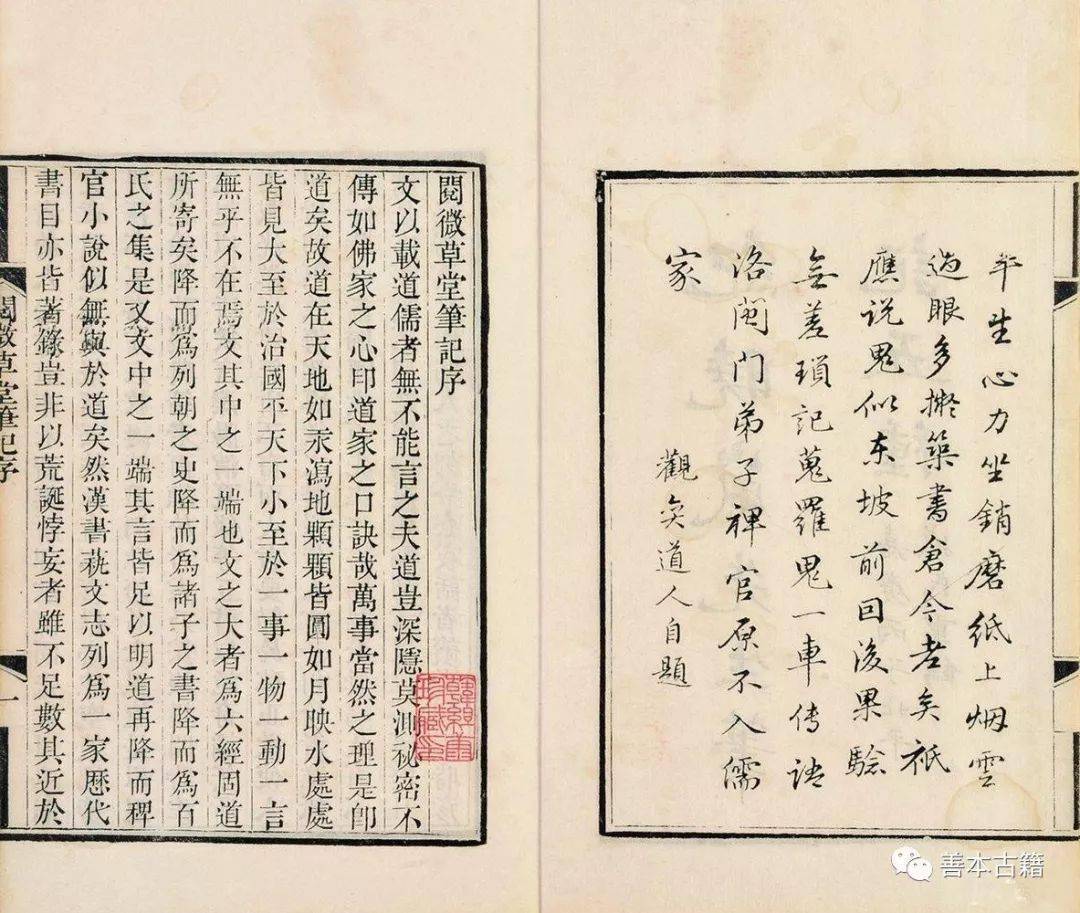 平生心力坐銷磨紙上烟雲
過眼多擬築書倉今老矣袛
應说鬼似东坡前回後果驗
無差瑣記蒐羅鬼一車传语
洛閩门弟子稗官原不入儒
家
觀奕道人自題
閱微草堂筆記序
文以載道儒者無不能言之夫道豈深隱莫測秘密不
傳如佛家之心印道家之口訣哉萬事當然之理是卽
道矣故道在天地如汞瀉地顆顆皆圓如月映水處處
皆見大至於治國平天下小至於一事一物一動一言
無乎不在焉文其中之一端也文之大者爲六經固道
所寄矣降而爲列朝之史降而爲諸子之書降而爲百
氏之集是又文中之一端其言皆足以明道再降而稗
官小說似無與於道矣然漢書蓺文志列爲一家歷代
書目亦皆著錄豈非以荒誕悖妄者雖不足數其近於
閱微草堂筆記序
一
善本古籍